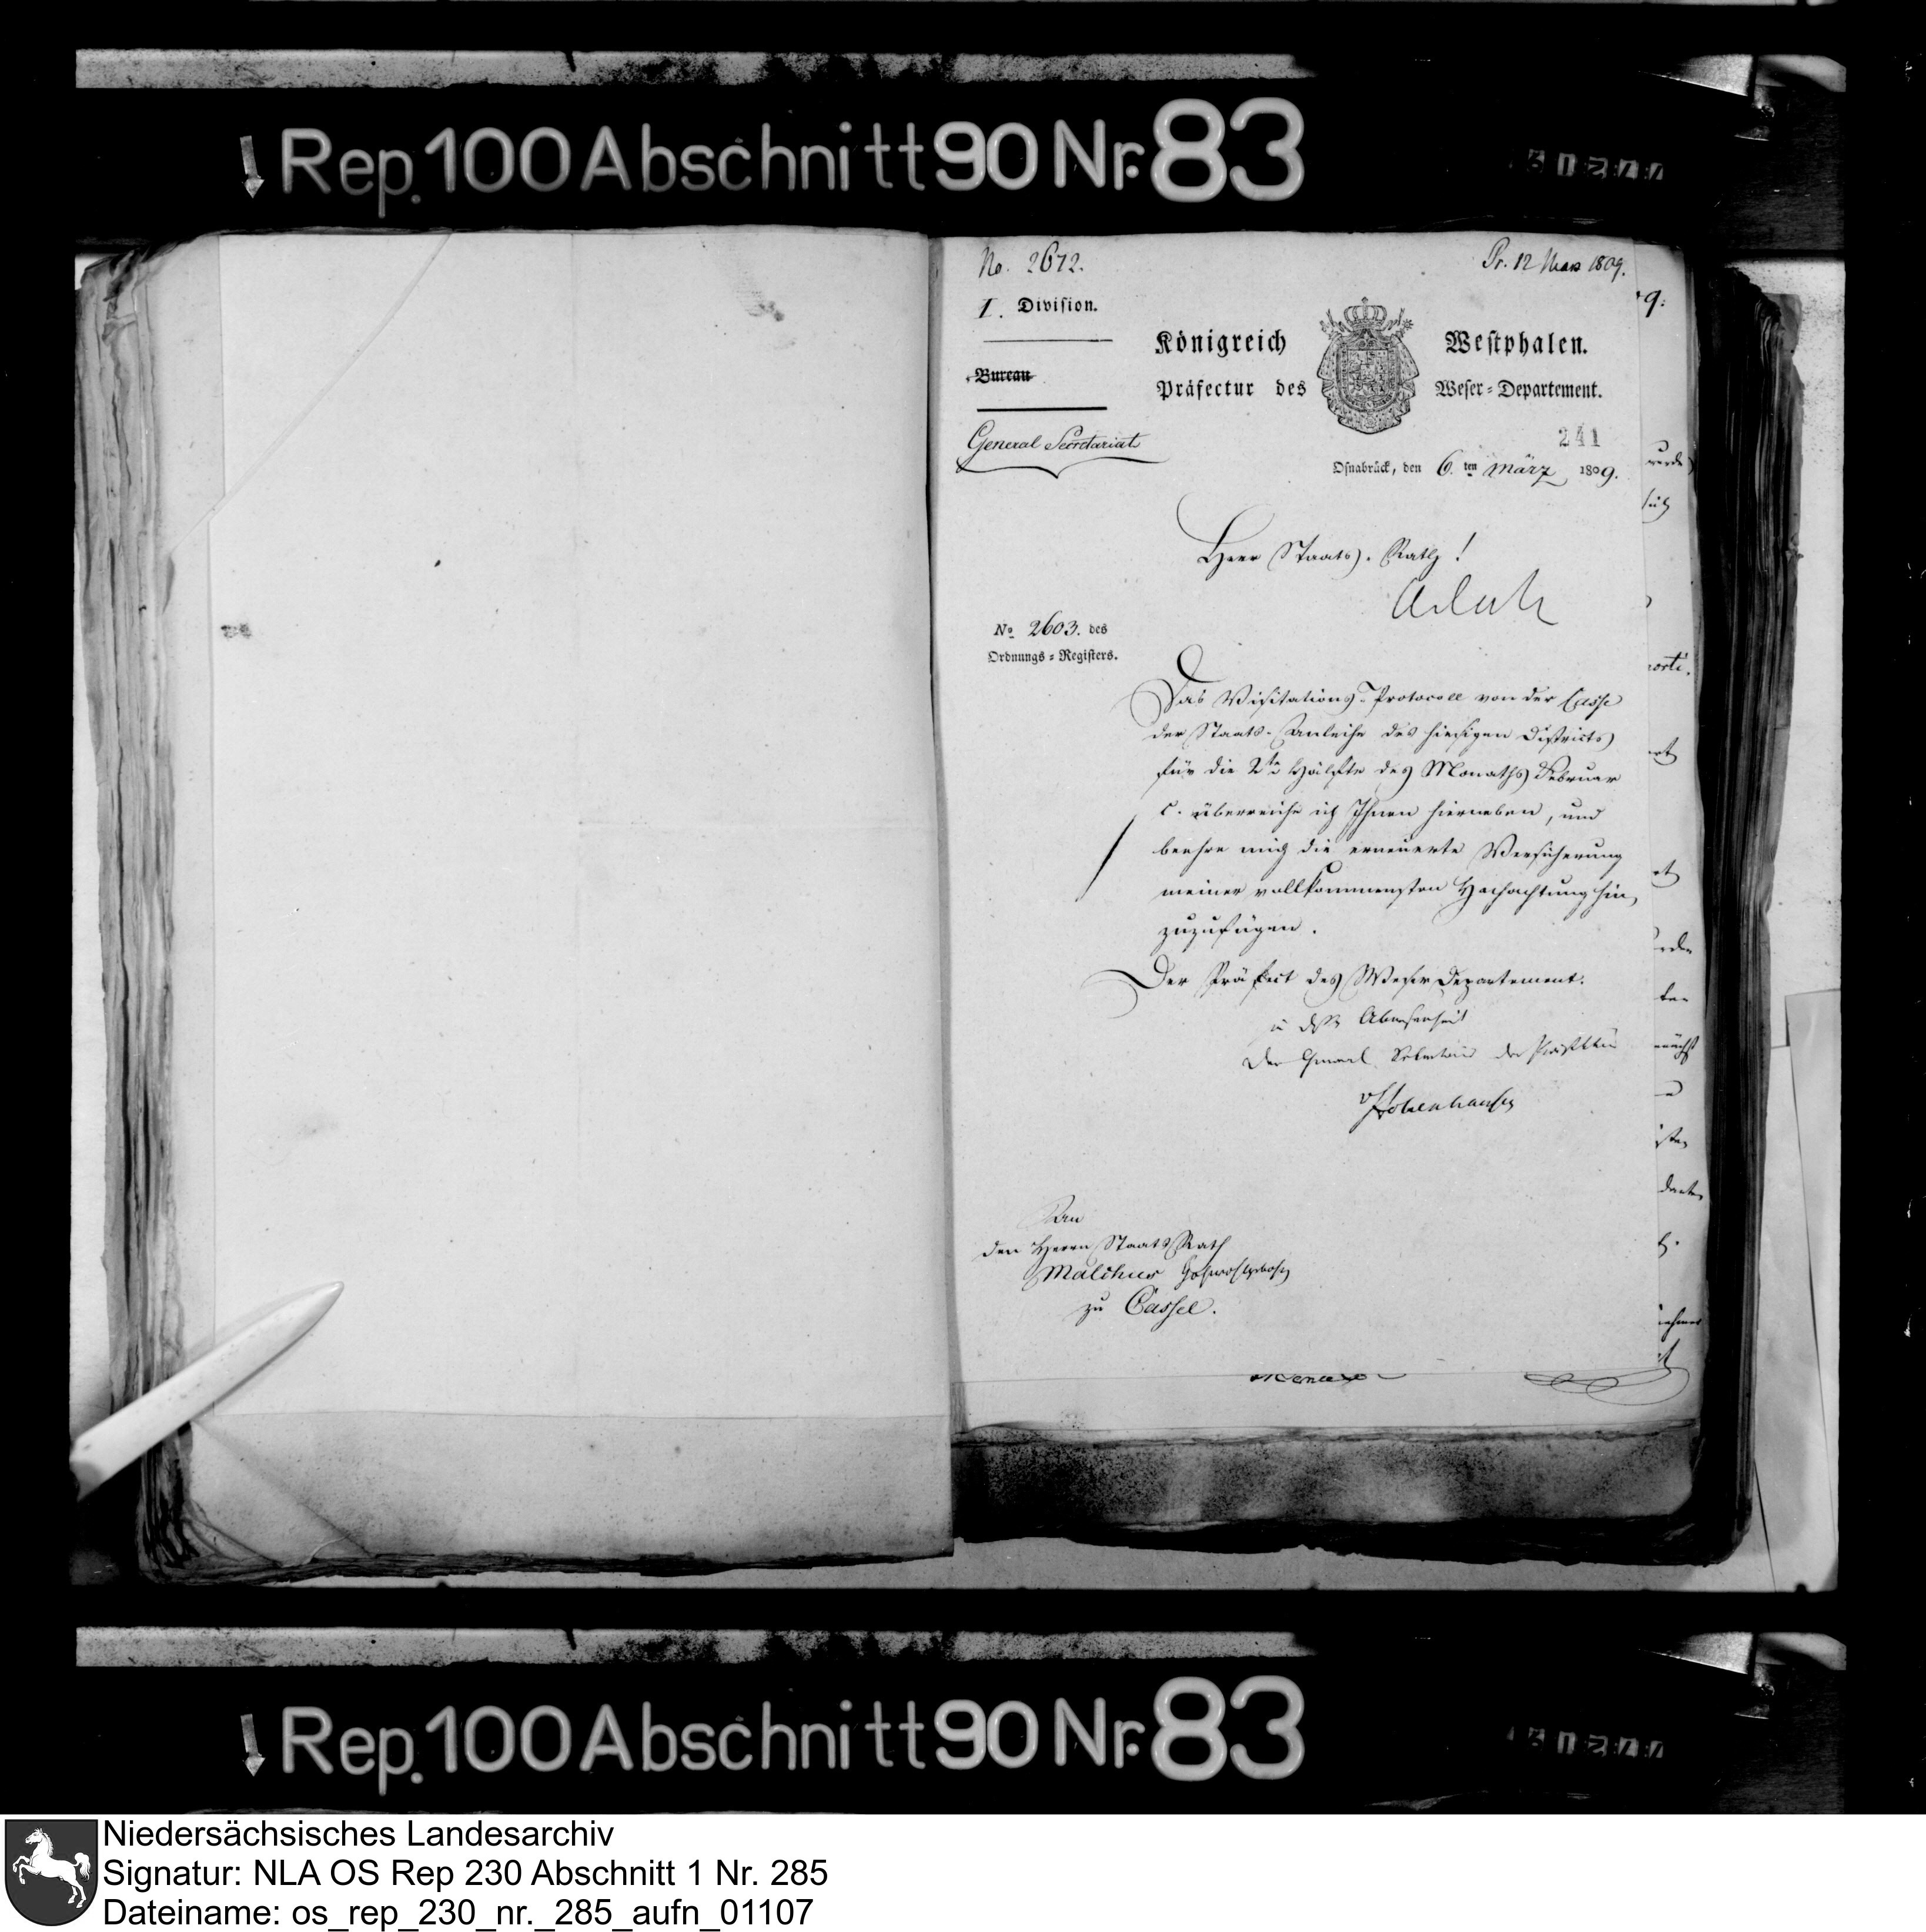 Rep. 100 Abschnitt 90 Nr. 83
No. 2672.
Pr. 12 März 1809.
I. Division.
Königreich Westphalen.
Bureau
Präfectur des Weser-Departement.
General Secretariat
241
Osnabrück, den 6. ten März 1809.
Herr Staats-Rath!
No 2603. des
Ordnungs-Registers.
Das Visitations-Protocoll von der Casse
der Staats-Anleihe des hiesigen Districts
für die 2te Hälfte des Monaths Februar
c. überreiche ich Ihnen hierneben, und
beehre mich die erneuerte Versicherung
meiner vollkommensten Hochachtung hin
zuzufügen.
Der Präfect des Weser Departement.
in dessen Abwesenheit
Der General Sekretair der Präfektur
vHohenhausen
An
den Herrn Staats Rath
Malchus Hochwohlgeboh
zu Cassel.
Rep. 100 Abschnitt 90 Nr. 83
Niedersächsisches Landesarchiv
Signatur: NLA OS Rep 230 Abschnitt 1 Nr. 285
Dateiname: os_rep_230_nr._285_aufn_01107